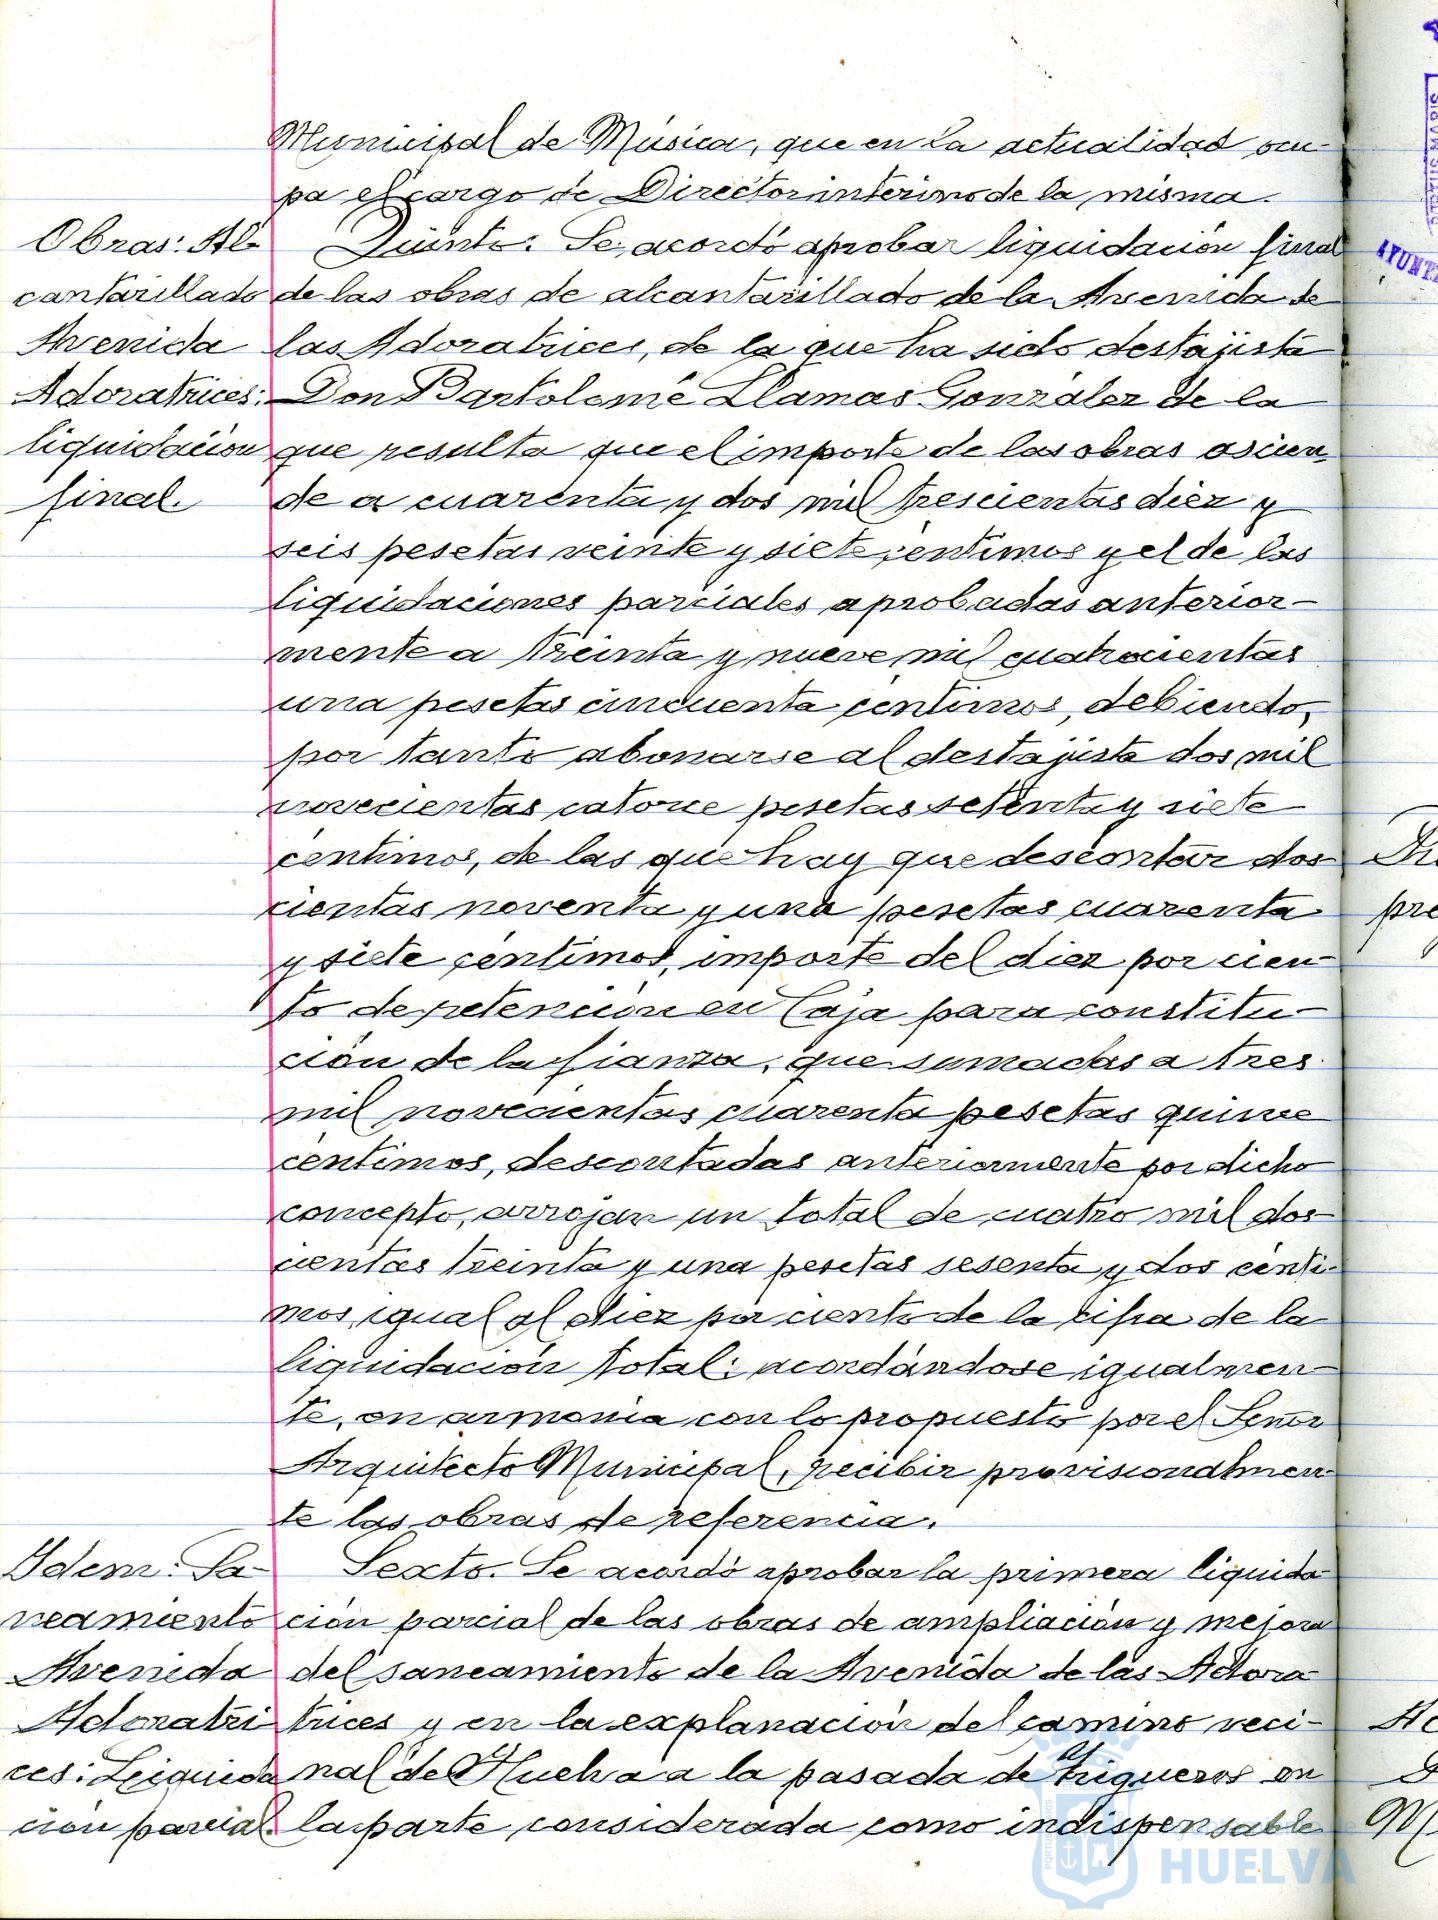 Municipal de Música, que en la actualidad ocu-
pa el cargo de Director interino de la misma.
Obras: Al-
cantarillado
Avenida
Adoratrices:
liquidación
final.
Quinto: Se acordó aprobar liquidación final
de las obras de alcantarillado de la Avenida de
las Adoratrices, de la que ha sido destajista
Don Bartolomé Llamas González de la
que resulta que el importe de las obras ascien-
de a cuarenta y dos mil trescientas diez y
seis pesetas veinte y siete céntimos y el de las
liquidaciones parciales aprobadas anterior-
mente a treinta y nueve mil cuatrocientas
una pesetas cincuenta céntimos, debiendo,
por tanto abonarse al destajista dos mil
novecientas catorce pesetas setenta y siete
céntimos, de las que hay que descontar dos-
cientas noventa y una pesetas cuarenta
y siete céntimos, importe del diez por cien-
to de retención en Caja para constitu-
ción de la fianza, que sumadas a tres
mil novecientas cuarenta pesetas quince
céntimos, descontadas anteriormente por dicho
concepto, arrojan un total de cuatro mil dos-
cientas treinta y una pesetas sesenta y dos cénti-
mos, igual al diez por ciento de la cifra de la
liquidación total; acordándose igualmen-
te, en armonía con lo propuesto por el Señor
Arquitecto Municipal, recibir provisionalmen-
te las obras de referencia.
Idem: Sa-
neamiento
Avenida
Adoratri
ces: Liquida
ción parcial.
Sexto. Se acordó aprobar la primera liquida-
ción parcial de las obras de ampliación y mejora
del saneamiento de la Avenida de las Adora-
trices y en la explanación del camino veci-
nal de Huelva a la pasada de Trigueros en
la parte considerada como indispensable
HUELVA